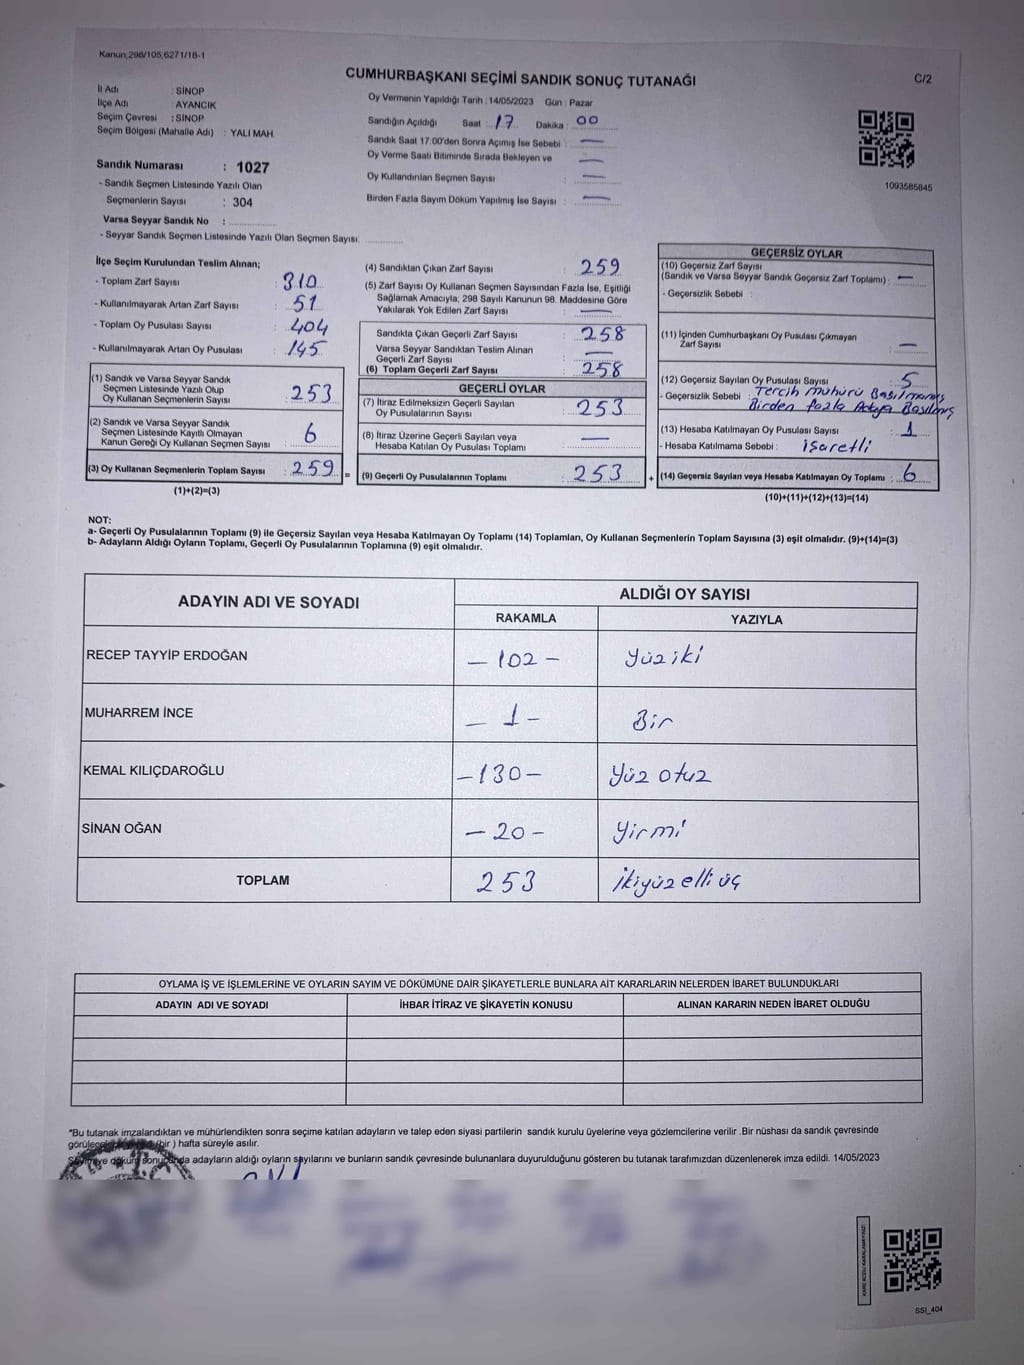 Kanun;298/105;6271/18-1
CUMHURBAŞKANI SEÇİMİ SANDIK SONUÇ TUTANAĞI
C/2
İl Adı : SİNOP
İlçe Adı : AYANCIK
Seçim Çevresi : SİNOP
Seçim Bölgesi (Mahalle Adı) : YALI MAH.
Sandık Numarası : 1027
- Sandık Seçmen Listesinde Yazılı Olan
Seçmenlerin Sayısı : 304
Varsa Seyyar Sandık No :
- Seyyar Sandık Seçmen Listesinde Yazılı Olan Seçmen Sayısı:
Oy Vermenin Yapıldığı Tarih : 14/05/2023 Gün : Pazar
Sandığın Açıldığı Saat : 17 Dakika : 00
Sandık Saat 17:00'den Sonra Açımış İse Sebebi : —
Oy Verme Saati Bitiminde Sırada Bekleyen ve —
Oy Kullandırılan Seçmen Sayısı : —
Birden Fazla Sayım Döküm Yapılmış İse Sayısı : —
1093585845
İlçe Seçim Kurulundan Teslim Alınan;
- Toplam Zarf Sayısı : 310
- Kullanılmayarak Artan Zarf Sayısı : 51
- Toplam Oy Pusulası Sayısı : 404
- Kullanılmayarak Artan Oy Pusulası : 145
(1) Sandık ve Varsa Seyyar Sandık
Seçmen Listesinde Yazılı Olup
Oy Kullanan Seçmenlerin Sayısı : 253
(2) Sandık ve Varsa Seyyar Sandık
Seçmen Listesinde Kayıtlı Olmayan
Kanun Gereği Oy Kullanan Seçmen Sayısı : 6
(3) Oy Kullanan Seçmenlerin Toplam Sayısı : 259 =
(1)+(2)=(3)
(4) Sandıktan Çıkan Zarf Sayısı : 259
(5) Zarf Sayısı Oy Kullanan Seçmen Sayısından Fazla İse, Eşitliği
Sağlamak Amacıyla; 298 Sayılı Kanunun 98. Maddesine Göre
Yakılarak Yok Edilen Zarf Sayısı : —
Sandıkta Çıkan Geçerli Zarf Sayısı : 258
Varsa Seyyar Sandıktan Teslim Alınan
Geçerli Zarf Sayısı : —
(6) Toplam Geçerli Zarf Sayısı : 258
GEÇERLİ OYLAR
(7) İtiraz Edilmeksizin Geçerli Sayılan
Oy Pusulalarının Sayısı : 253
(8) İtiraz Üzerine Geçerli Sayılan veya
Hesaba Katılan Oy Pusulası Toplamı : —
(9) Geçerli Oy Pusulalarının Toplamı : 253 +
GEÇERSİZ OYLAR
(10) Geçersiz Zarf Sayısı
(Sandık ve Varsa Seyyar Sandık Geçersiz Zarf Toplamı) : —
- Geçersizlik Sebebi :
(11) İçinden Cumhurbaşkanı Oy Pusulası Çıkmayan
Zarf Sayısı : —
(12) Geçersiz Sayılan Oy Pusulası Sayısı : 5
- Geçersizlik Sebebi : Tercih mühürü Basılmamış
Birden fazla Adaya Basılmış
(13) Hesaba Katılmayan Oy Pusulası Sayısı : 1
- Hesaba Katılmama Sebebi : işaretli
(14) Geçersiz Sayılan veya Hesaba Katılmayan Oy Toplamı : 6
(10)+(11)+(12)+(13)=(14)
NOT:
a- Geçerli Oy Pusulalarının Toplamı (9) ile Geçersiz Sayılan veya Hesaba Katılmayan Oy Toplamı (14) Toplamları, Oy Kullanan Seçmenlerin Toplam Sayısına (3) eşit olmalıdır. (9)+(14)=(3)
b- Adayların Aldığı Oyların Toplamı, Geçerli Oy Pusulalarının Toplamına (9) eşit olmalıdır.
ADAYIN ADI VE SOYADI
ALDIĞI OY SAYISI
RAKAMLA YAZIYLA
RECEP TAYYİP ERDOĞAN – 102 – Yüz iki
MUHARREM İNCE – 1 – Bir
KEMAL KILIÇDAROĞLU – 130 – Yüz otuz
SİNAN OĞAN – 20 – Yirmi
TOPLAM 253 İkiyüz elli üç
OYLAMA İŞ VE İŞLEMLERİNE VE OYLARIN SAYIM VE DÖKÜMÜNE DAİR ŞİKAYETLERLE BUNLARA AİT KARARLARIN NELERDEN İBARET BULUNDUKLARI
ADAYIN ADI VE SOYADI İHBAR İTİRAZ VE ŞİKAYETİN KONUSU ALINAN KARARIN NEDEN İBARET OLDUĞU
*Bu tutanak imzalandıktan ve mühürlendikten sonra seçime katılan adayların ve talep eden siyasi partilerin sandık kurulu üyelerine veya gözlemcilerine verilir .Bir nüshası da sandık çevresinde
(bir ) hafta süreyle asılır.
adayların aldığı oyların sayılarını ve bunların sandık çevresinde bulunanlara duyurulduğunu gösteren bu tutanak tarafımızdan düzenlenerek imza edildi. 14/05/2023
SSI_404